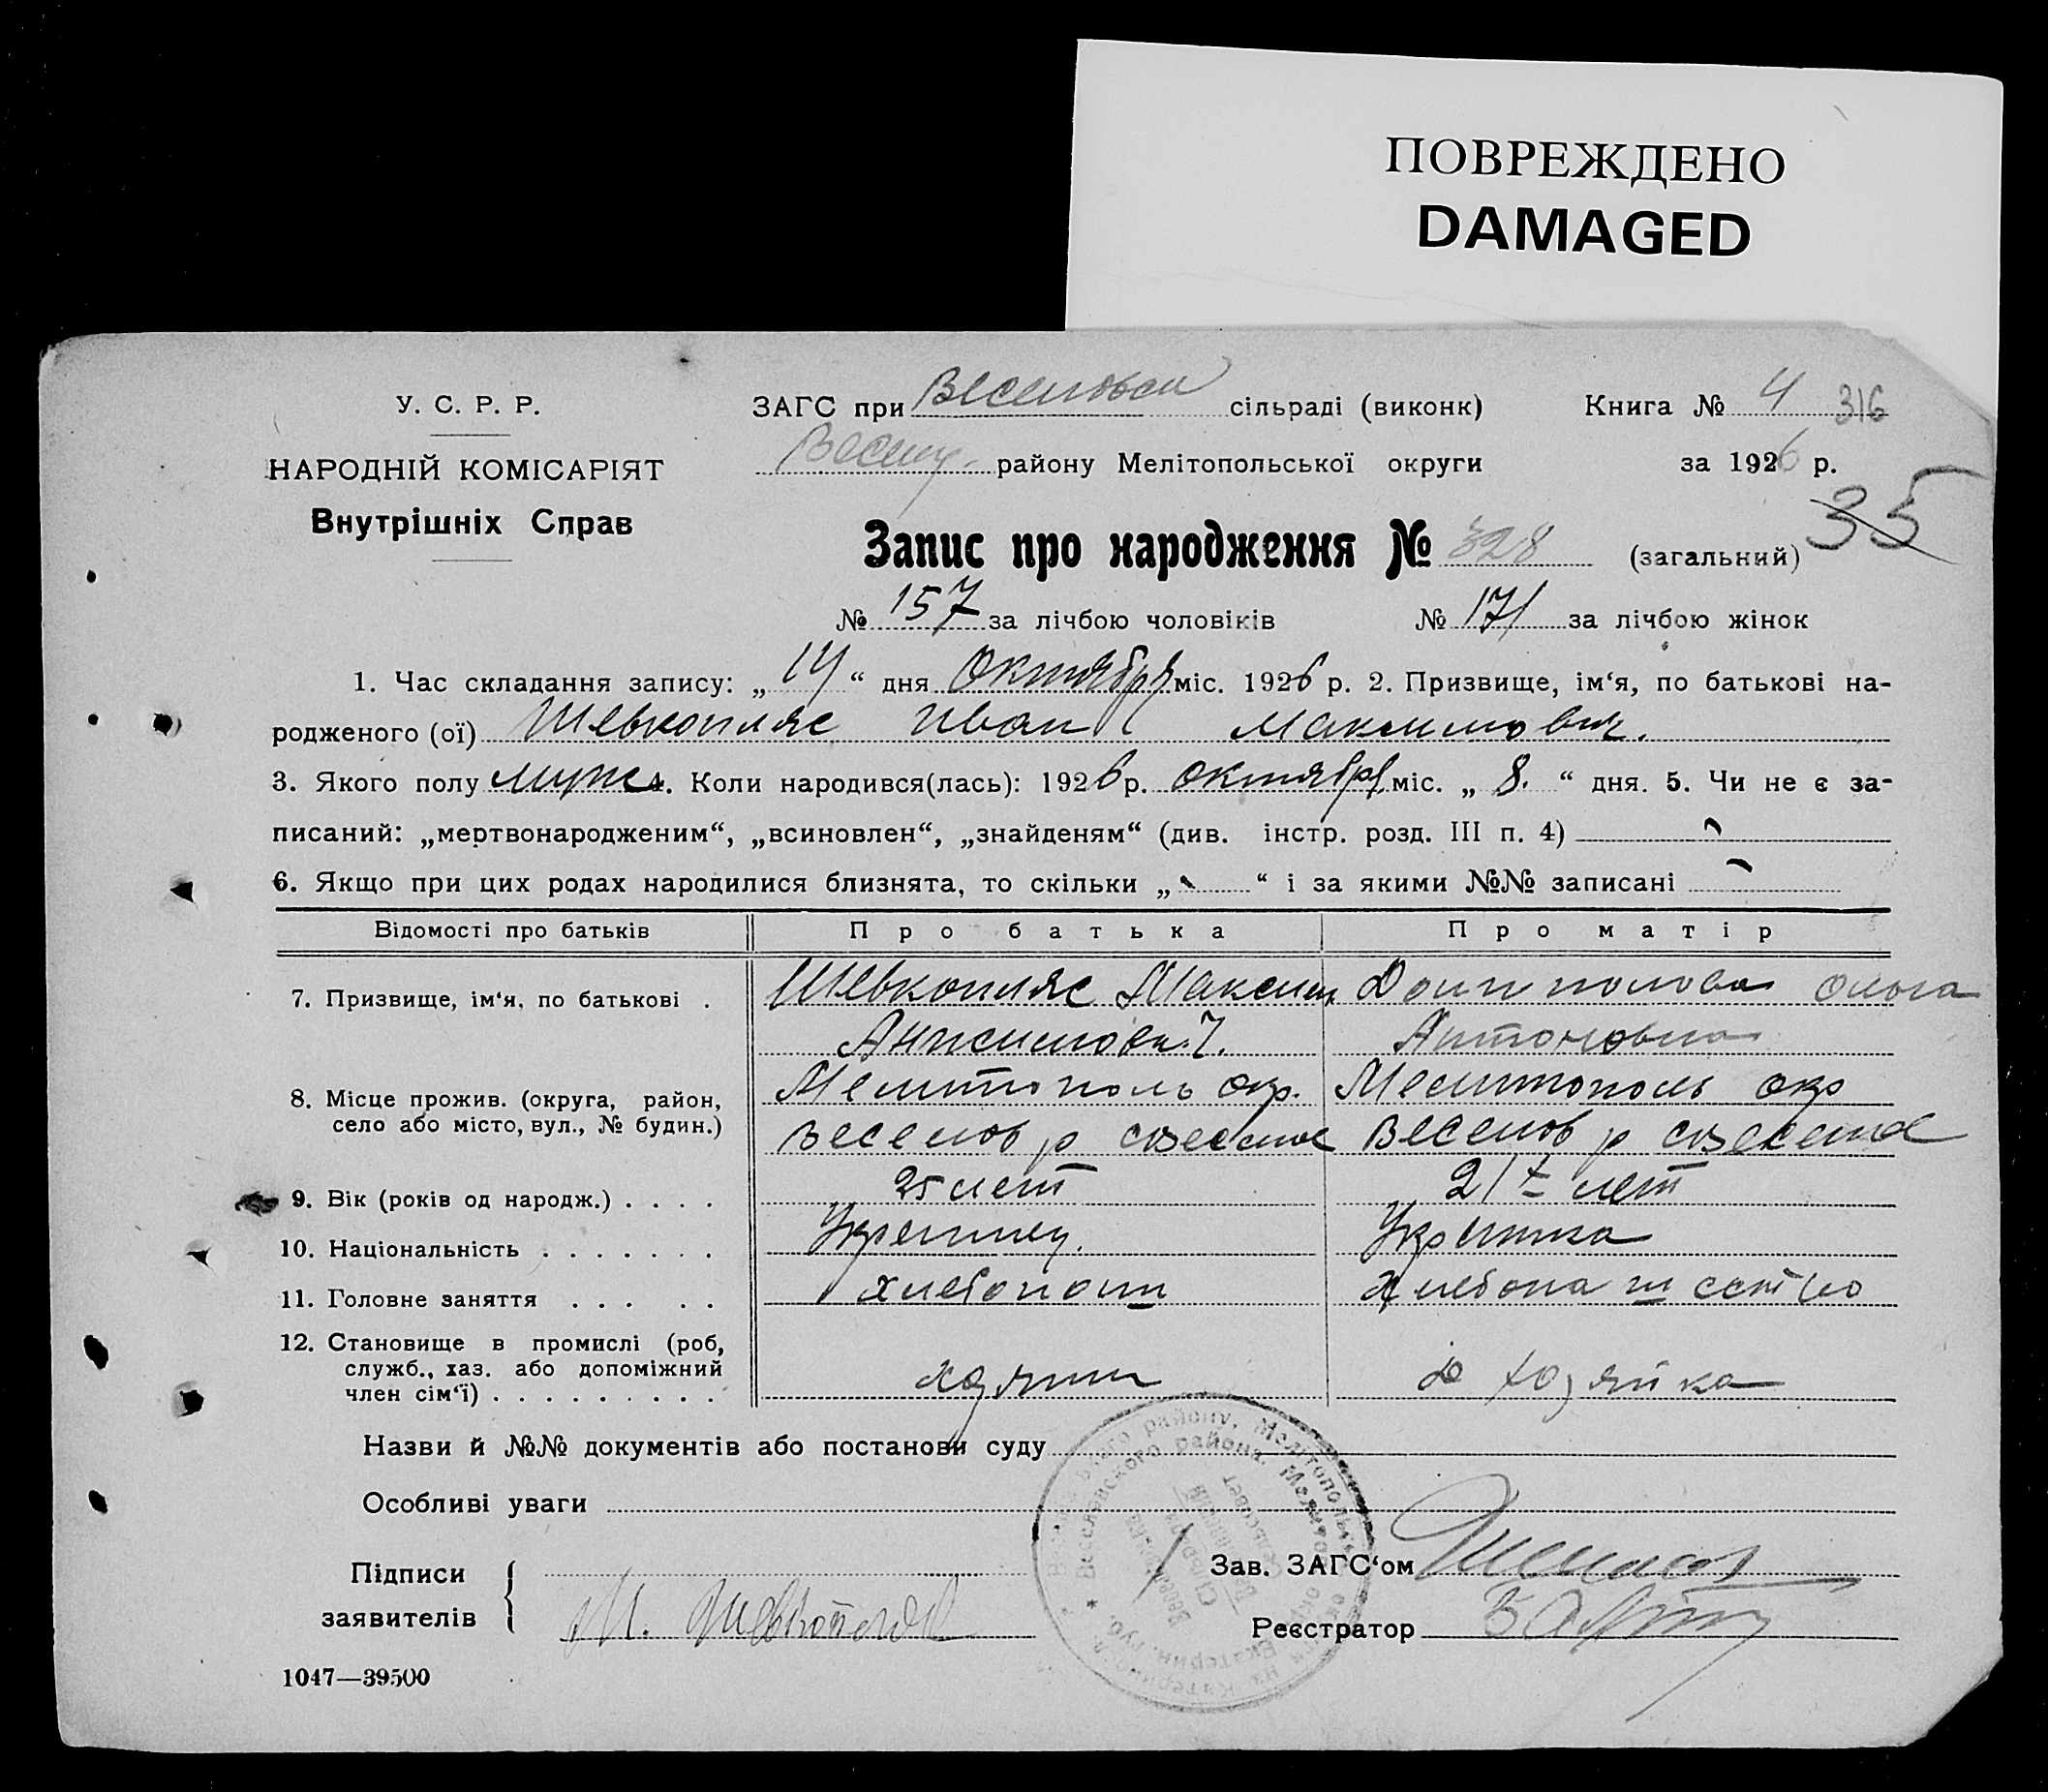 ПОВРЕЖДЕНО
DAMAGED
У. С. Р. Р.
НАРОДНІЙ КОМІСАРІЯТ
Внутрішніх Справ
ЗАГС при Веселовси сільраді (виконк) Книга № 4 316
району Мелітопольської округи за 1926 р.
35
Запис про народження № 328 (загальний)
№ 157 за лічбою чоловіків № 171 за лічбою жінок
1. Час складання запису: „14“ дня Октября міс. 1926 р. 2. Призвище, ім‘я, по батькові на-
родженого (ої) Шевкопляс Иван Максимович.
3. Якого полу муж 4. Коли народився(лась): 1926 р. октября міс. „8.“ дня. 5. Чи не є за-
писаний: „мертвонародженим“, „всиновлен“, „знайденям“ (див. інстр. розд. III п. 4)
6. Якщо при цих родах народилися близнята, то скільки „ “ і за якими №№ записані
Відомості про батьків Про батька Про матір
7. Призвище, ім‘я, по батькові . Шевкопляс Максим Ольга
Анисимов. Антоновна
8. Місце прожив. (округа, район, Мелитополь окр. Мелитополь окр
село або місто, вул., № будин.) Веселов р с Веселое Веселов р с Веселое
9. Вік (років од народж.) . . . . 25 лет 21 лет
10. Національність . . . . . . . Украинец. Украинка
11. Головне заняття . . . . . хлебопаш хлебопашество
12. Становище в промислі (роб,
служб., хаз. або допоміжний хозяин хозяйка
член сім‘ї) . . . . . . . . .
Назви й №№ документів або постанови суду
Особливі уваги
Підписи
заявителів М. Шевкопляс
Зав. ЗАГС‘ом
Реєстратор
Веселовского района, Мелитоп. окр. Екатерин. губ.
1047—39500